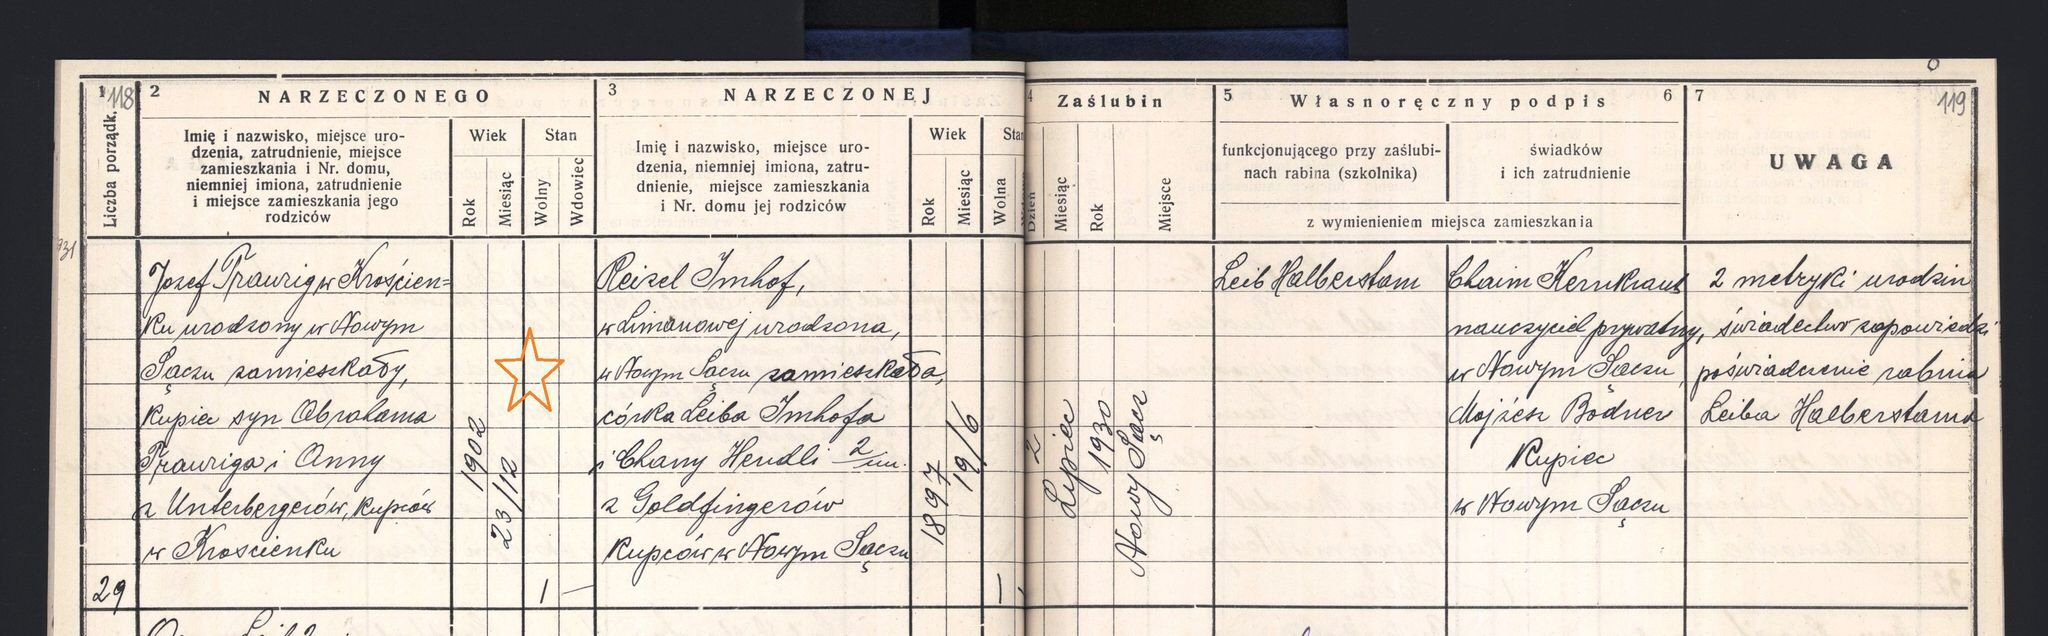 118
1
Liczba porządk.
2
NARZECZONEGO
Imię i nazwisko, miejsce uro-
dzenia, zatrudnienie, miejsce
zamieszkania i Nr. domu,
niemniej imiona, zatrudnienie
i miejsce zamieszkania jego
rodziców
Wiek
Rok
Miesiąc
Stan
Wolny
Wdowiec
3
NARZECZONEJ
Imię i nazwisko, miejsce uro-
dzenia, niemniej imiona, zatru-
dnienie, miejsce zamieszkania
i Nr. domu jej rodziców
Wiek
Rok
Miesiąc
Stan
Wolna
4
Zaślubin
Dzień
Miesiąc
Rok
Miejsce
5
Własnoręczny podpis
6
funkcjonującego przy zaślubi-
nach rabina (szkolnika)
świadków
i ich zatrudnienie
z wymienieniem miejsca zamieszkania
7
119
UWAGA
931
29
Jozef Traurig w Krościen=
ku urodzony w Nowym
Sączu zamieszkały,
kupiec syn Abrahama
Trauriga i Anny
z Unterbergerów, kupców
w Kroscienku
1902
23/12
1 —
Reizel Imhof,
w Limanowej urodzona,
w Nowym Sączu zamieszkała,
córka Leiba Imhofa
i Chany Hendli 2/im.
z Goldfingerów
kupców w Nowym Sączu
1897
19/6
1
2
Lipiec
1930
Nowy Sącz
Leib Halberstam
Chaim Kernkraut
nauczyciel prywatny,
w Nowym Sączu,
Mojżesz Bodner
Kupiec
w Nowym Sączu
2 metryki urodzin
świadectwo zapowiedzi
poświadczenie rabina
Leiba Halberstama